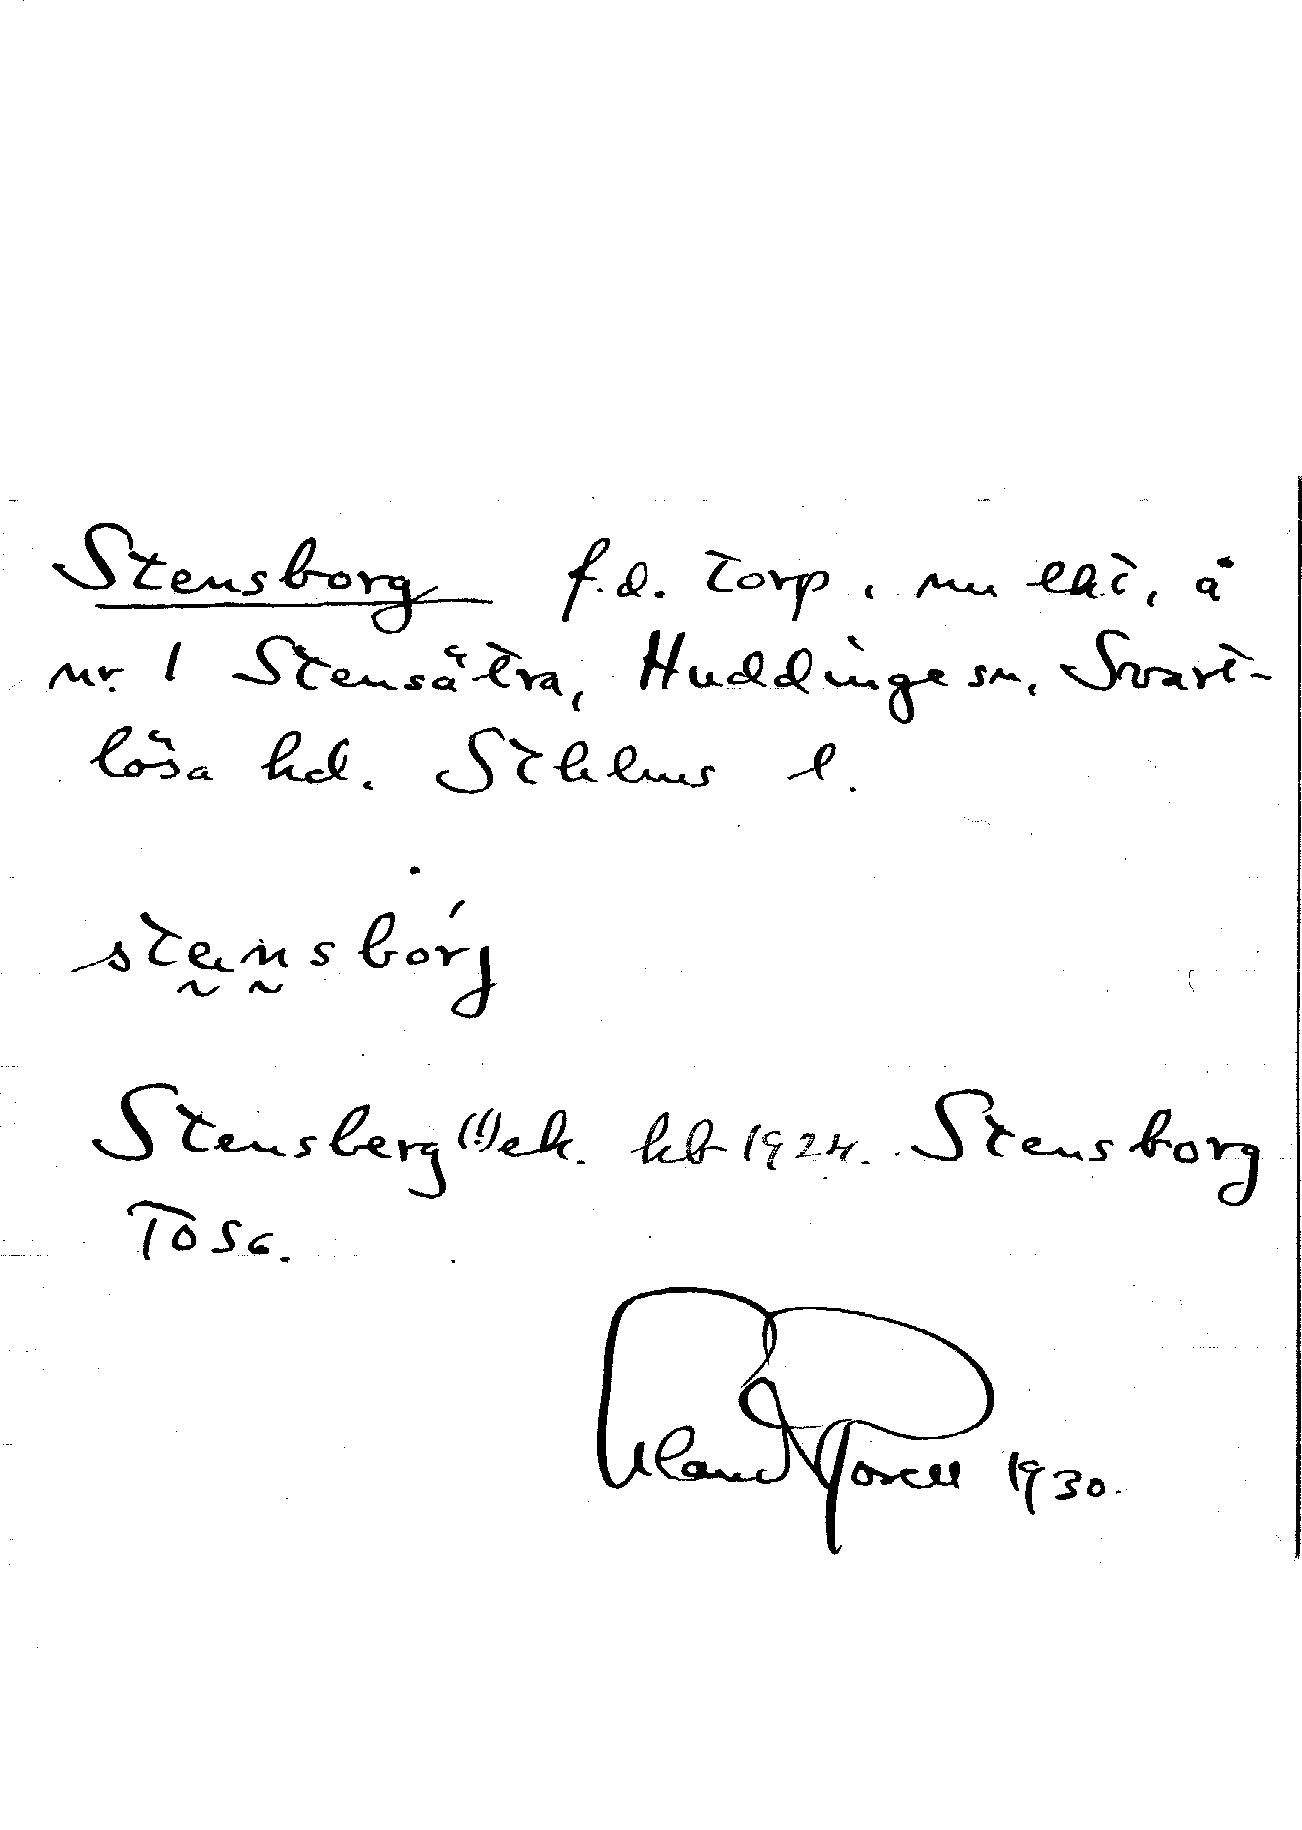 Stensborg f.d. torp, nu lht, å
nr. 1 Stensätra, Huddinge sn, Svart-
lösa hd. Sthlms l.
stensbórj
Stensberg (!) ek. kb 1924. Stensborg
TOSG.
1930.